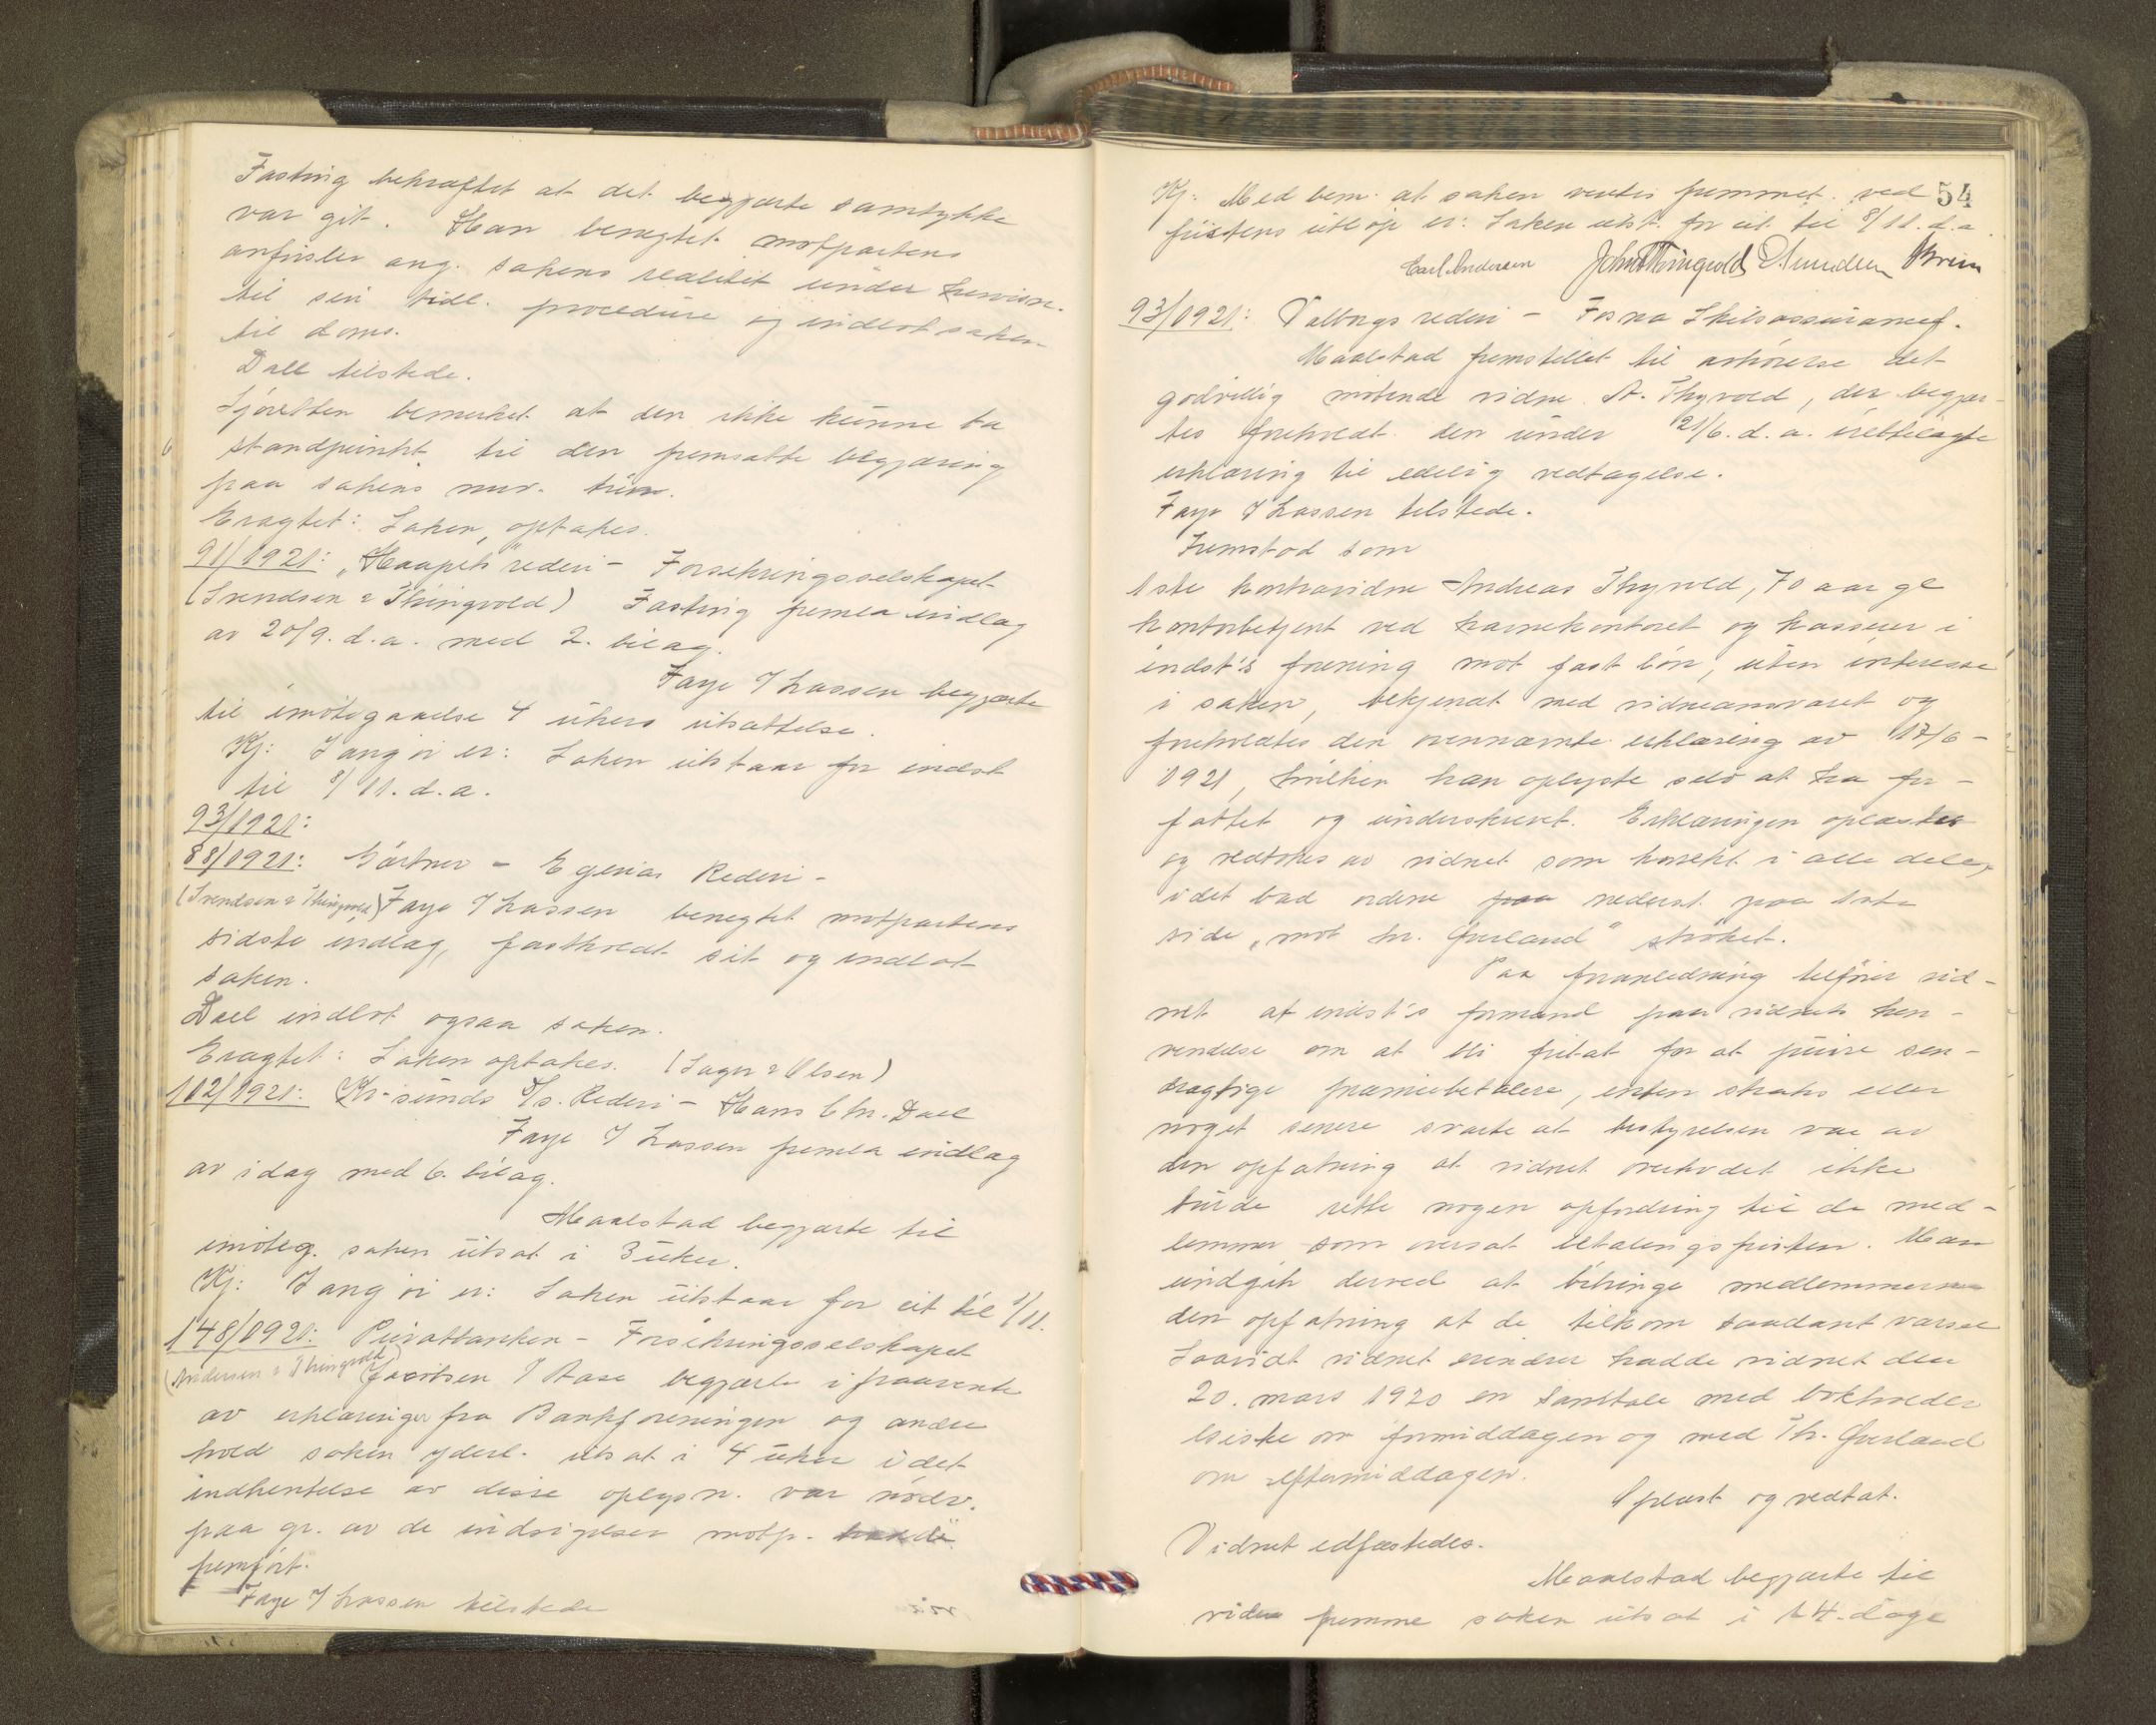 Fasting bekræftet at det begjærte samtykke
var git. Han benegtet motpartens
anførsler ang. sakens realitet under henvisn.
til sin tidl. procedure og indlot saken
til doms.
Dall tilstede.
Sjøretten bemerket at den ikke kunne ta
standpunkt til den fremsatte begjæring
paa sakens nuv. trin.
Eragtet: Saken optakes.
91/1921: „Haapets" rederi - Forsikringsselskapet
(Svendsen & Thingvold) Fasting fremla indlag
av 20/9. d.a. med 2. bilag.
Faye & Lassen begjærte
til imøtegaaelse 4 ukers utsættelse.
Kj: I ang øi er: Saken utstaar for indst
til 8/11. d.a.
93/1921:
88/1921: Gärtner - Egenæs Rederi -
(Svendsen & Thingvold) Faye & Lassen benegtet motpartens
sidste indlag, fastholdt sit og indlot
saken.
Dall indlot ogsaa saken.
Eragtet: Saken optakes. (Sager & Olsen)
102/1921: Kr-sunds D/s. Rederi - Hans Chr. Dall
Faye & Lassen fremla indlag
av idag med 6. bilag.
Maalstad begjærte til
imøteg. saken utsat i 3 uker.
Kj: I ang øi er: Saken utstaar for cit til 1/11.
148/1920: Privatbanken - Forsikringsselskapet
(Andersen & Thingvold) Jacobsen & Aase begjærte i paavente
av erklæringer fra Bankforeningen og andre
hold saken yderl. utsat i 4 uker idet
indhentelse av disse oplysn. var nødv.
paa gr. av de indsigelser motp. hadde
fremført.
Faye & Lassen tilstede
54
Kj: Med bem. at saken ventes fremmet ved
fristens utløp er: Saken utst. for cit. til 8/11. d.a.
Carl Andersen John Thingvold
93/1921: Valborgs rederi - Fosna Skibsassuransef.
Maalstad fremstillet til avhørelse det
godvillig møtende vidne A. Thyvold, der begjær-
tes foreholdt den under 21/6. d.a. fremlagte
erklæring til edelig vedtagelse.
Faye & Lassen tilstede.
Fremstod som
1ste kontravidne Andreas Thyvold, 70 aar gl
kontorbetjent ved havnekontoret og kasserer i
indst's forening mot fast løn, uten interesse
i saken, bekjendt med vidneansvaret og
foreholdtes den ovennævnte erklæring av 17/6 -
1921, hvilken han oplyste selv at ha for-
fattet og underskrevet. Erklæringen oplæstes
og vedtokes av vidnet som korrekt i alle dele,
idet bad ordene paa nederst paa 1ste
side „mot hr. Gurland" strøket.
Paa foranledning tilføier vid-
net at indst's formand paa vidnets hen-
vendelse om at bli fritat for at purre sen-
drægtige præmiebetalere, enten straks eller
noget senere svarte at bestyrelsen var av
den opfatning at vidnet overhodet ikke
burde rette nogen opfordring til de med-
lemmer som oversat betalingsfristen. Man
undgik derved at bibringe medlemmerne
den opfatning at de tilkom saadant varsel
Saavidt vidnet erindrer hadde vidnet den
20. mars 1920 en samtale med bokholder
Esiske om formiddagen og med Th. Gurland
om eftermiddagen.
Oplæst og vedtat.
Vidnet edfæstedes.
Maalstad begjærte til
videre fremme saken utsat i 14. dage